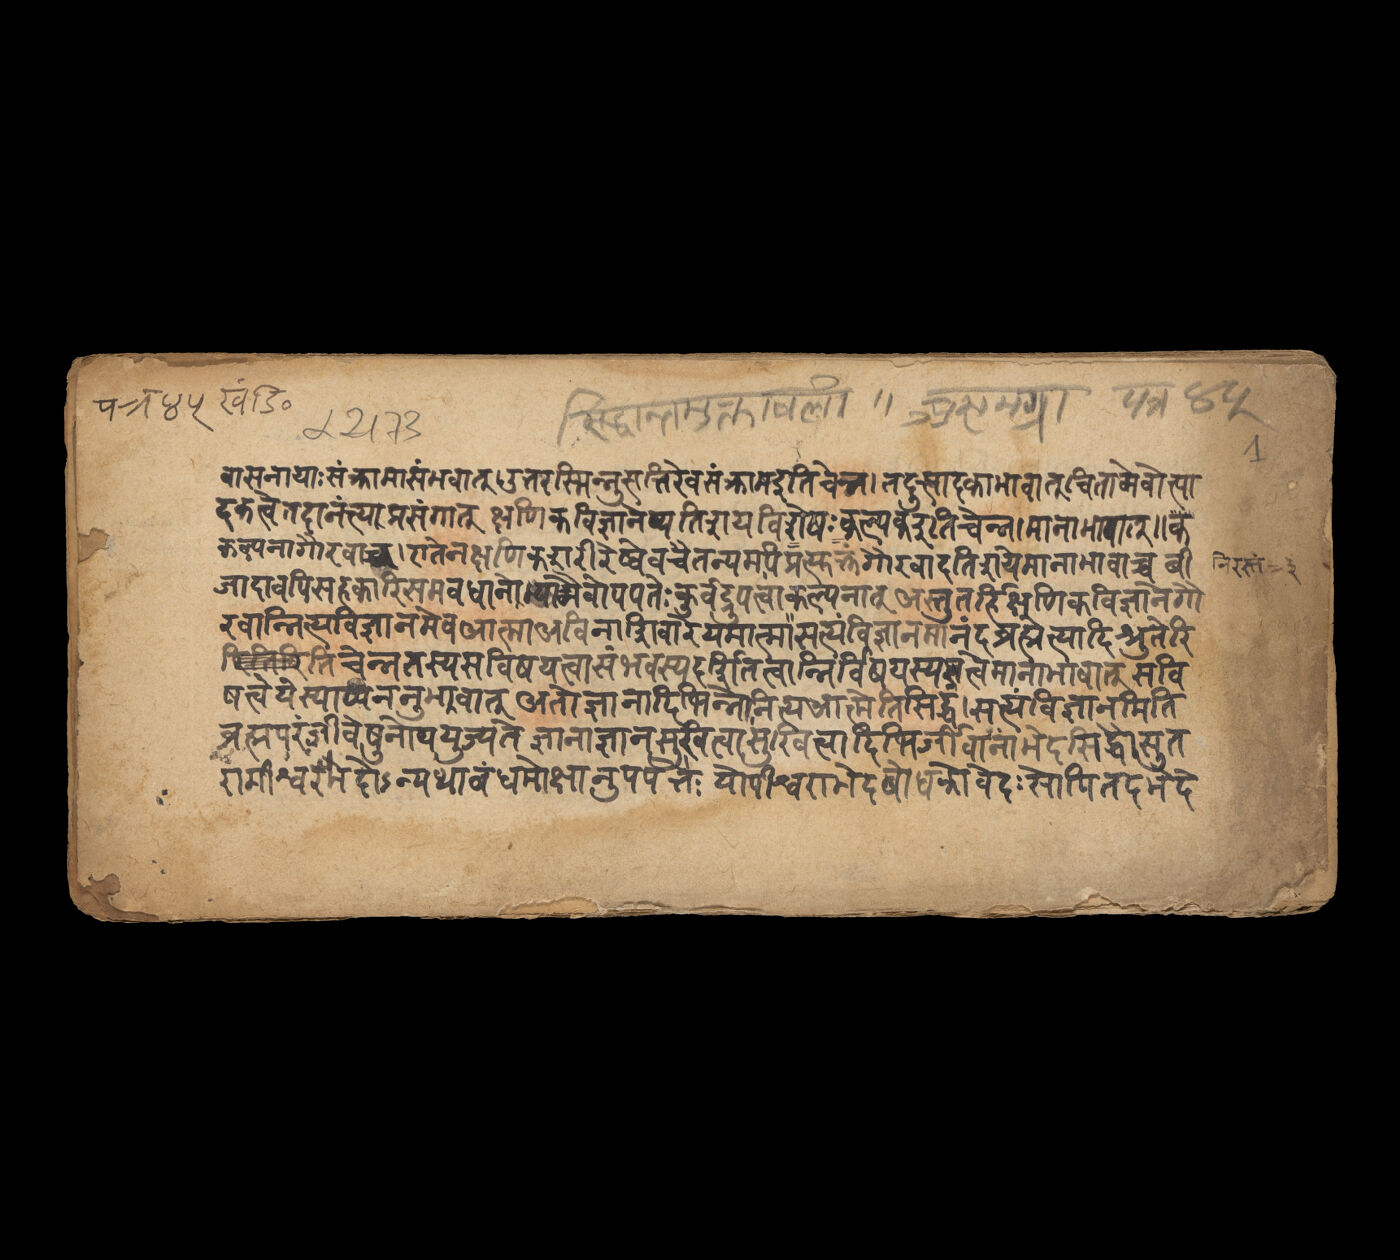 पत्र ४५ खंडि०
सिद्धान्तमुक्तावली ॥ पत्र ४५
1
वासनायाः संक्रामासंभवात् उत्तरस्मिन्नुत्पत्तिरेव संक्रामइति चेन्न। तदुत्पादकाभावात् चितामेवोत्पा
दकत्वे तदानंत्याप्रसंगात् क्षणिकविज्ञानेष्वतिशयविशेषः कल्प्यतइति चेन्न। मानाभावात्॥ क
कल्पनागौरवाच्च। एतेन क्षणिकशरीरेष्वेव चैतन्यमपि गौरवादतिशयेमानाभावाच्च बी
निरस्तं
जादावपि सहकारिसमवधाना वोपपत्तेः कुर्वद्रूपत्वाकल्पनात् अस्तु तर्हि क्षणिकविज्ञानेगौ
रवान्नित्यविज्ञानमेव आत्मा अविनाशिवारेयमात्मा सत्यंविज्ञानमानंदंब्रह्मेत्यादिश्रुतेरि
ति चेन्न तस्य सविषयत्वासंभवस्य दर्शितत्वान्निर्विषयस्य त्वे मानाभावात् सवि
षत्वयस्याप्यननुभावात् अतो ज्ञानादिभिन्नो नित्य आत्मेति सिद्धं। सत्यंविज्ञानमिति
ब्रह्मपरंजीवेषुनोपयुज्यते ज्ञानाज्ञानसुखित्वासुखित्वादिभिर्जीवानां भेदसिद्धौ सुत
रामीश्वरभेदोऽन्यथा बंधमोक्षानुपपत्तेः योपीश्वराभेदबोधको वेदः सोपि तदभेदे